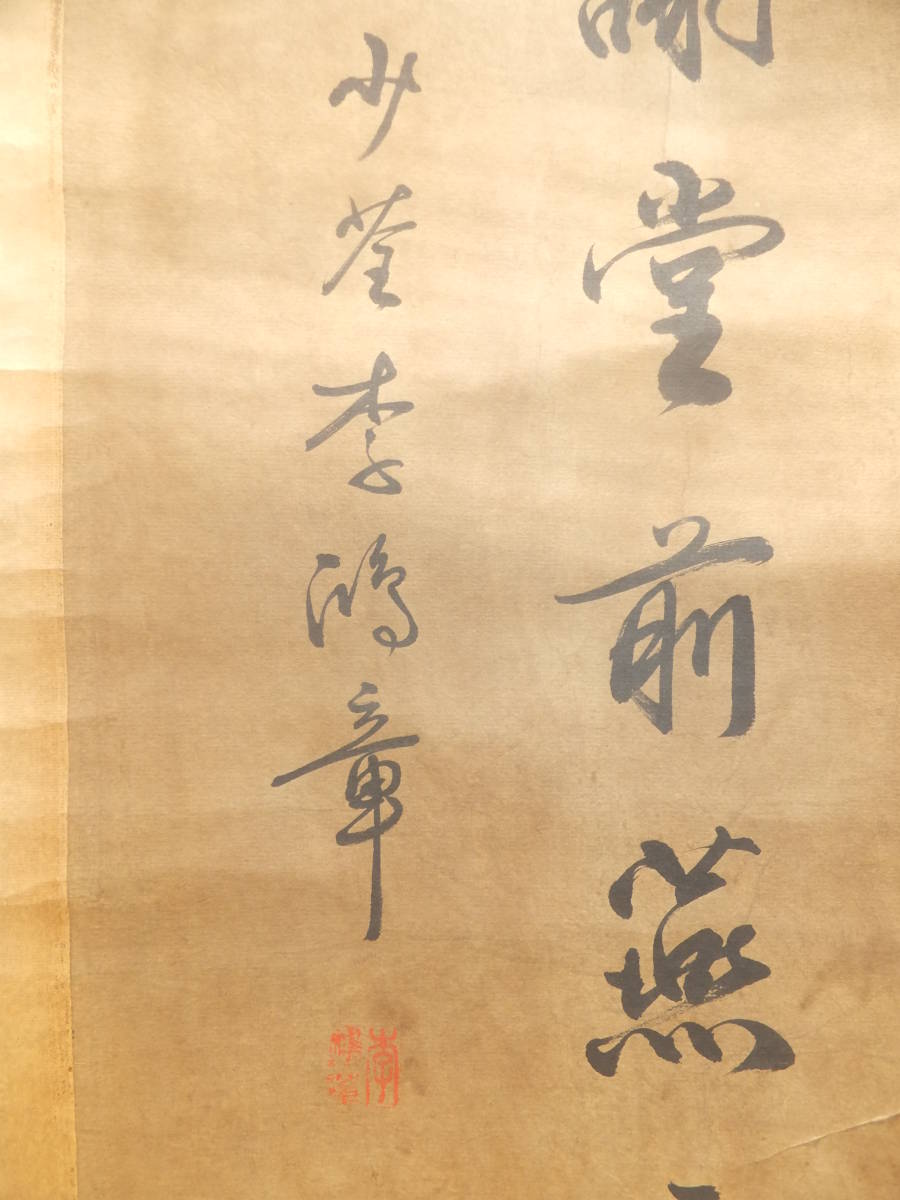 堂前燕
少荃李鴻章
李